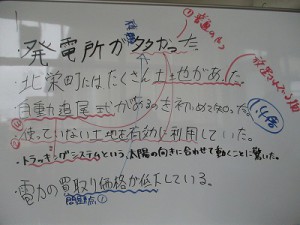 ・発電所が多かった。
・北栄町にはたくさん土地があった。
・自動追尾式があるのを初めて知った。
・使っていない土地を有効に利用していた。
・トラッキングシステムという、太陽の向きに合わせて動くことに驚いた。
・電力の買取り価格が低下している。
問題点①
1.4倍